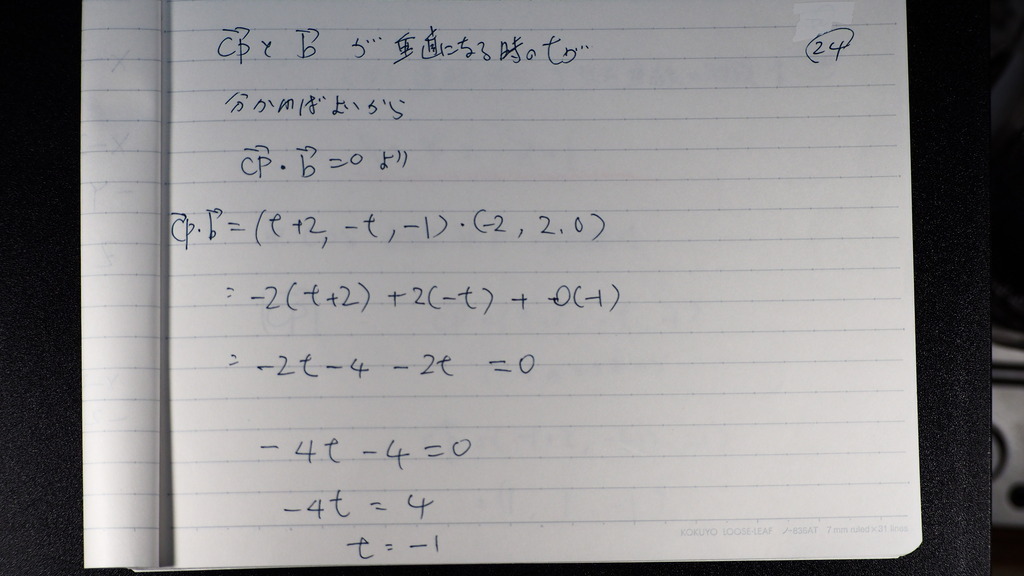 CP→ と b→ が 垂直になる時のtが
24
分かればよいから
CP→・b→=0 より
CP→・b→=(t+2, -t, -1)・(-2, 2, 0)
= -2(t+2) +2(-t) + 0(-1)
= -2t-4 -2t =0
-4t-4=0
-4t=4
t=-1
KOKUYO LOOSE-LEAF ノ-836AT 7 mm ruled×31 lines